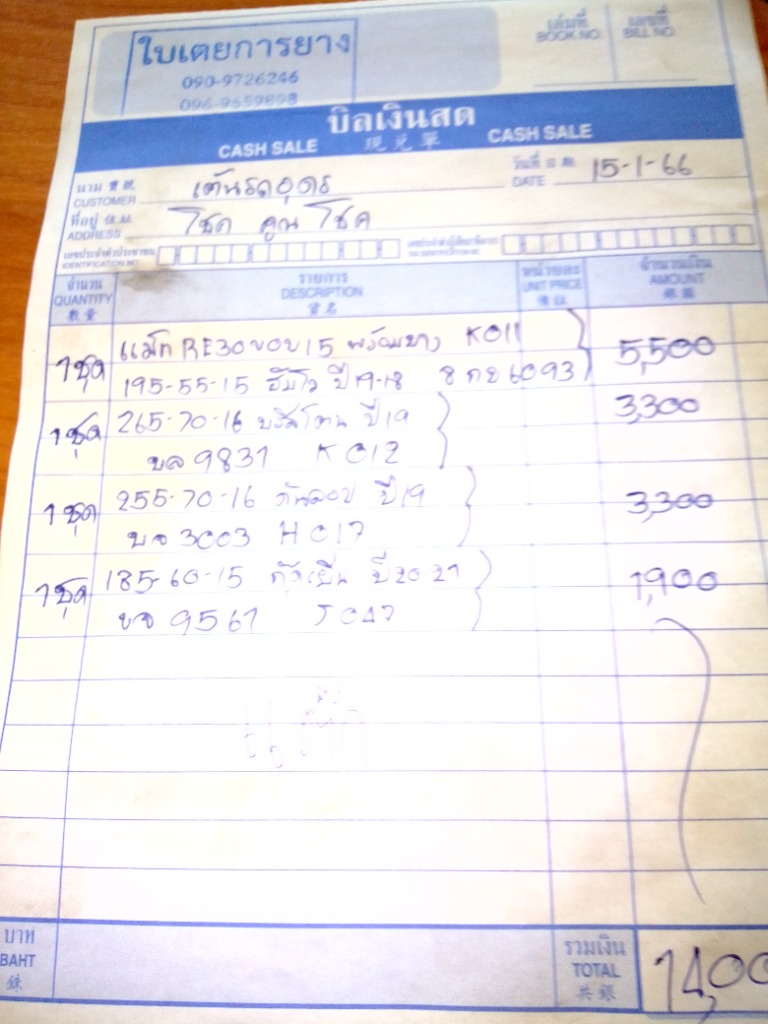 ใบเตยการยาง
090-9726246
096-9659898
เล่มที่ BOOK NO.
เลขที่ BILL NO.
บิลเงินสด
CASH SALE 現兌單 CASH SALE
นาม 寶號 CUSTOMER เต้นรถอุดร
วันที่ DATE 15-1-66
ที่อยู่ ADDRESS โชค คูณ โชค
เลขประจำตัวประชาชน
IDENTIFICATION NO.
จำนวน รายการ หน่วยละ จำนวนเงิน
QUANTITY DESCRIPTION UNIT PRICE AMOUNT
數量 貨名
1ชุด แม็ก RE30 ขอบ 15 พร้อมยาง K011 5,500
195-55-15 ปี 19-18 8 กย 6093
1ชุด 265-70-16 ปี 19 3,300
บล 9831 K012
1ชุด 255-70-16 ดันลอป ปี 19 3,300
บจ 3003 H017
1ชุด 185-60-15 ปี 20 21 1,900
บจ 9561 J047
บาท
BAHT
รวมเงิน
TOTAL 14,00
共銀